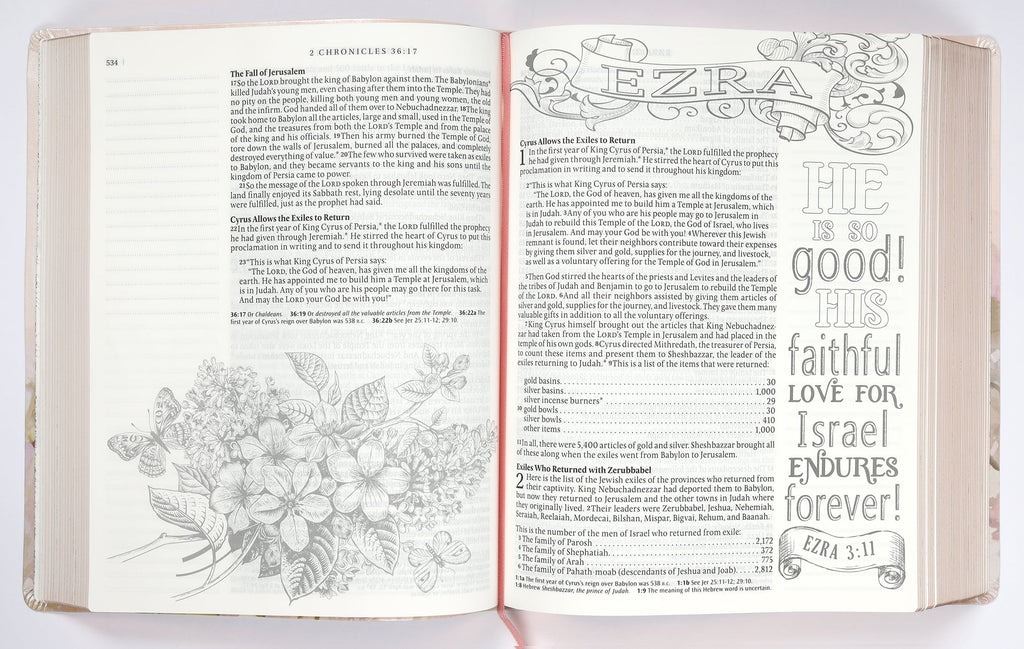 534
2 CHRONICLES 36:17
The Fall of Jerusalem
17So the LORD brought the king of Babylon against them. The Babylonians*
killed Judah's young men, even chasing after them into the Temple. They had
no pity on the people, killing both young men and young women, the old
and the infirm. God handed all of them over to Nebuchadnezzar. 18The king
took home to Babylon all the articles, large and small, used in the Temple of
God, and the treasures from both the LORD's Temple and from the palace
of the king and his officials. 19Then his army burned the Temple of God,
tore down the walls of Jerusalem, burned all the palaces, and completely
destroyed everything of value.* 20The few who survived were taken as exiles
to Babylon, and they became servants to the king and his sons until the
kingdom of Persia came to power.
21So the message of the LORD spoken through Jeremiah was fulfilled. The
land finally enjoyed its Sabbath rest, lying desolate until the seventy years
were fulfilled, just as the prophet had said.
Cyrus Allows the Exiles to Return
22In the first year of King Cyrus of Persia,* the LORD fulfilled the prophecy
he had given through Jeremiah.* He stirred the heart of Cyrus to put this
proclamation in writing and to send it throughout his kingdom:
23"This is what King Cyrus of Persia says:
"The LORD, the God of heaven, has given me all the kingdoms of the
earth. He has appointed me to build him a Temple at Jerusalem, which
is in Judah. Any of you who are his people may go there for this task.
And may the LORD your God be with you!"
36:17 Or Chaldeans. 36:19 Or destroyed all the valuable articles from the Temple. 36:22a The
first year of Cyrus's reign over Babylon was 538 B.C. 36:22b See Jer 25:11-12; 29:10.
EZRA
Cyrus Allows the Exiles to Return
1 In the first year of King Cyrus of Persia,* the LORD fulfilled the prophecy
he had given through Jeremiah.* He stirred the heart of Cyrus to put this
proclamation in writing and to send it throughout his kingdom:
2"This is what King Cyrus of Persia says:
"The LORD, the God of heaven, has given me all the kingdoms of the
earth. He has appointed me to build him a Temple at Jerusalem, which
is in Judah. 3Any of you who are his people may go to Jerusalem in
Judah to rebuild this Temple of the LORD, the God of Israel, who lives
in Jerusalem. And may your God be with you! 4Wherever this Jewish
remnant is found, let their neighbors contribute toward their expenses
by giving them silver and gold, supplies for the journey, and livestock,
as well as a voluntary offering for the Temple of God in Jerusalem."
5Then God stirred the hearts of the priests and Levites and the leaders of
the tribes of Judah and Benjamin to go to Jerusalem to rebuild the Temple
of the LORD. 6And all their neighbors assisted by giving them articles of
silver and gold, supplies for the journey, and livestock. They gave them many
valuable gifts in addition to all the voluntary offerings.
7King Cyrus himself brought out the articles that King Nebuchadnez-
zar had taken from the LORD's Temple in Jerusalem and had placed in the
temple of his own gods. 8Cyrus directed Mithredath, the treasurer of Persia,
to count these items and present them to Sheshbazzar, the leader of the
exiles returning to Judah.* 9This is a list of the items that were returned:
gold basins. 30
silver basins. 1,000
silver incense burners* 29
10 gold bowls 30
silver bowls 410
other items 1,000
11In all, there were 5,400 articles of gold and silver. Sheshbazzar brought all
of these along when the exiles went from Babylon to Jerusalem.
Exiles Who Returned with Zerubbabel
2 Here is the list of the Jewish exiles of the provinces who returned from
their captivity. King Nebuchadnezzar had deported them to Babylon,
but now they returned to Jerusalem and the other towns in Judah where
they originally lived. 2Their leaders were Zerubbabel, Jeshua, Nehemiah,
Seraiah, Reelaiah, Mordecai, Bilshan, Mispar, Bigvai, Rehum, and Baanah.
This is the number of the men of Israel who returned from exile:
3 The family of Parosh 2,172
4 The family of Shephatiah. 372
5 The family of Arah 775
6 The family of Pahath-moab (descendants of Jeshua and Joab). 2,812
1:1a The first year of Cyrus's reign over Babylon was 538 B.C. 1:1b See Jer 25:11-12; 29:10.
1:8 Hebrew Sheshbazzar, the prince of Judah. 1:9 The meaning of this Hebrew word is uncertain.
HE
IS SO
good!
HIS
faithful
LOVE FOR
Israel
ENDURES
forever!
EZRA 3:11